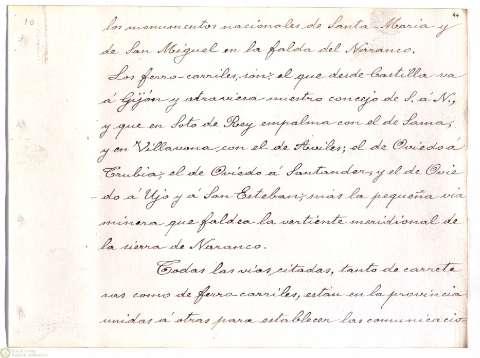 10
44
los monumentos nacionales de Santa María y
de San Miguel en la falda del Naranco.
Los ferro-carriles, son: el que desde Castilla va
á Gijón y atraviesa nuestro concejo de S. á N.,
y que en Soto de Rey empalma con el de Sama,
y en Villavona con el de Aviles; el de Oviedo á
Trubia; el de Oviedo á Santander, y el de Ovie
do á Ujo y á San Esteban; más la pequeña via
minera que faldea la vertiente meridional de
la sierra de Naranco.
Todas las vías citadas, tanto de carrete
ras como de ferro-carriles, están en la provincia
unidas á otras para establecer las comunicacio-